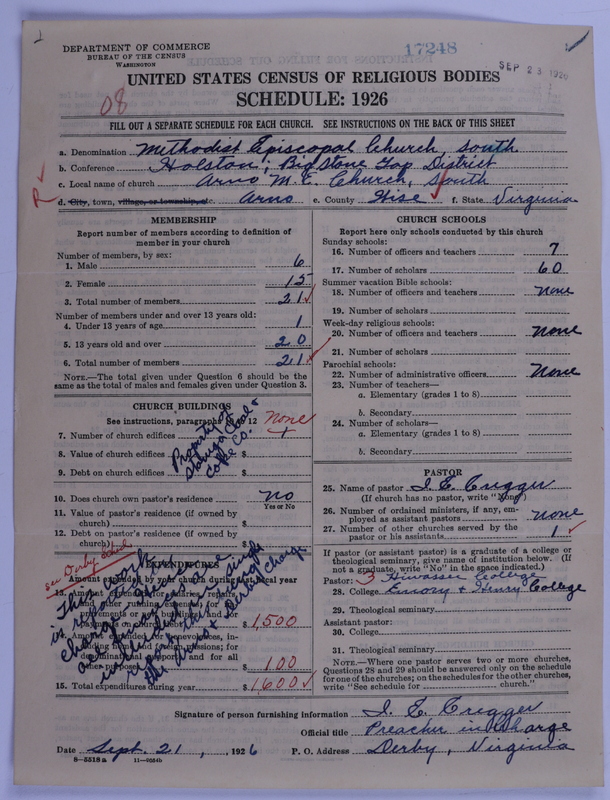 1
17248
SEP 23 1926
DEPARTMENT OF COMMERCE
BUREAU OF THE CENSUS
WASHINGTON
UNITED STATES CENSUS OF RELIGIOUS BODIES
SCHEDULE: 1926
08
FILL OUT A SEPARATE SCHEDULE FOR EACH CHURCH. SEE INSTRUCTIONS ON THE BACK OF THIS SHEET
a. Denomination Methodist Episcopal Church, South
b. Conference Holston; Big Stone Gap District
c. Local name of church Arno M. E. Church, South
R
d. City, town, village, or township, etc. Arno e. County Wise f. State Virginia
MEMBERSHIP
Report number of members according to definition of
member in your church
Number of members, by sex:
1. Male 6
2. Female 15
3. Total number of members 21
Number of members under and over 13 years old:
4. Under 13 years of age 1
5. 13 years old and over 20
6. Total number of members 21
NOTE.—The total given under Question 6 should be the
same as the total of males and females given under Question 3.
CHURCH BUILDINGS
See instructions, paragraphs 12
7. Number of church edifices None
8. Value of church edifices $
9. Debt on church edifices $
Property of
Stonega Coke &
Coke Co.
10. Does church own pastor's residence no
Yes or No
11. Value of pastor's residence (if owned by
church) $
12. Debt on pastor's residence (if owned by
church) $
see Derby
EXPENDITURES
13. Amount expended by your church during last fiscal year
$ 1,500
$ 100
15. Total expenditures during year $ 1600
CHURCH SCHOOLS
Report here only schools conducted by this church
Sunday schools:
16. Number of officers and teachers 7
17. Number of scholars 60
Summer vacation Bible schools:
18. Number of officers and teachers None
19. Number of scholars
Week-day religious schools:
20. Number of officers and teachers None
21. Number of scholars
Parochial schools:
22. Number of administrative officers None
23. Number of teachers—
a. Elementary (grades 1 to 8)
b. Secondary
24. Number of scholars—
a. Elementary (grades 1 to 8)
b. Secondary
PASTOR
25. Name of pastor I. E. Crigger
(If church has no pastor, write "None")
26. Number of ordained ministers, if any, em-
ployed as assistant pastors None
27. Number of other churches served by the
pastor or his assistants 1
If pastor (or assistant pastor) is a graduate of a college or
theological seminary, give name of institution below. (If
not a graduate, write "No" in the space indicated.)
Pastor: 3 Hiwassee College
28. College Emory & Henry College
29. Theological seminary
Assistant pastor:
30. College
31. Theological seminary
NOTE.—Where one pastor serves two or more churches,
Questions 28 and 29 should be answered only on the schedule
for one of the churches; on the schedules for the other churches,
write "See schedule for church."
Signature of person furnishing information I. E. Crigger
Official title Preacher in charge
Date Sept. 21, 1926 P. O. Address Derby, Virginia
8—5518a 11—9054b